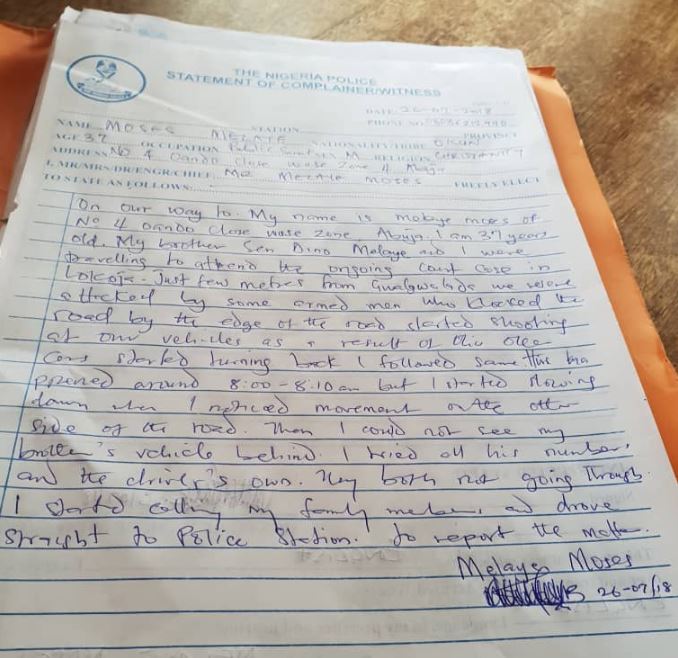 THE NIGERIA POLICE
STATEMENT OF COMPLAINER/WITNESS
DATE 26-07-2018
NAME MOSES MELAYE STATION PHONE NO
AGE 37 OCCUPATION Public Servant NATIONALITY/TRIBE OKUN PROVINCE
ADDRESS No 4 Oando Close wuse Zone 4 Abuja RELIGION CHRISTIANITY
I, MR/MRS/DR/ENGR/CHIEF: MR MELAYE MOSES FREELY ELECT
TO STATE AS FOLLOWS:
On our way to. My name is melaye moses of
No 4 oando Close wuse zone, Abuja. I am 37 years
old. My brother Sen Dino Melaye and I were
travelling to attend the ongoing court case in
Lokoja. Just few metres from Gwagwalada we were
attacked by some armed men who blocked the
road by the edge of the road started shooting
at our vehicles as a result of this other
Cars started turning back I followed same. This ha
ppened around 8:00 - 8:10am but I started slowing
down when I noticed movement on the other
side of the road. Then I could not see my
brother's vehicle behind. I tried all his numbers
and the driver's own. They both not going through.
I started calling my family members and drove
straight to Police Station. to report the matter.
Melaye Moses
26-07/18